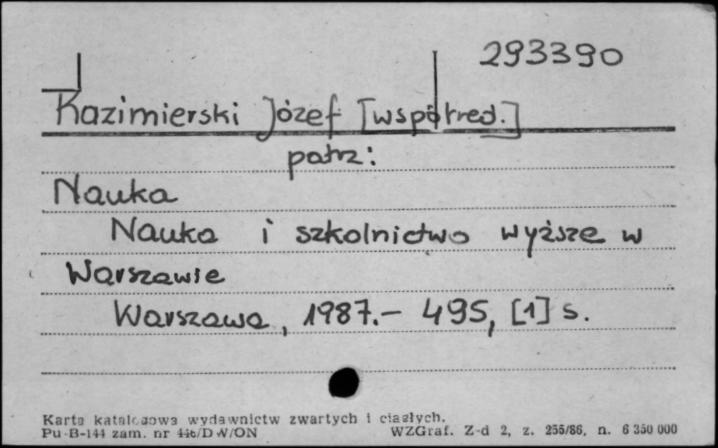 293390
Kazimierski Józef [współred.]
patrz:
Nauka
Nauka i szkolnictwo wyższe w
Warszawie
Warszawa, 1987.- 495, [1] s.
Karta katalogowa wydawnictw zwartych i ciągłych.
Pu-B-144 zam. nr 446/DW/ON WZGraf. Z-d 2, z. 255/86, n. 6 350 000